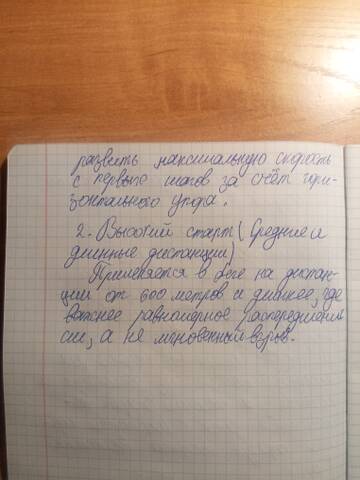 развить максимальную скорость
с первых шагов за счёт гори-
зонтального упора.
2. Высокий старт (Средние и
длинные дистанции)
Применяется в беге на дистан-
ции от 600 метров и длиннее, где
важнее равномерное распределение
сил, а не мгновенный взрыв.